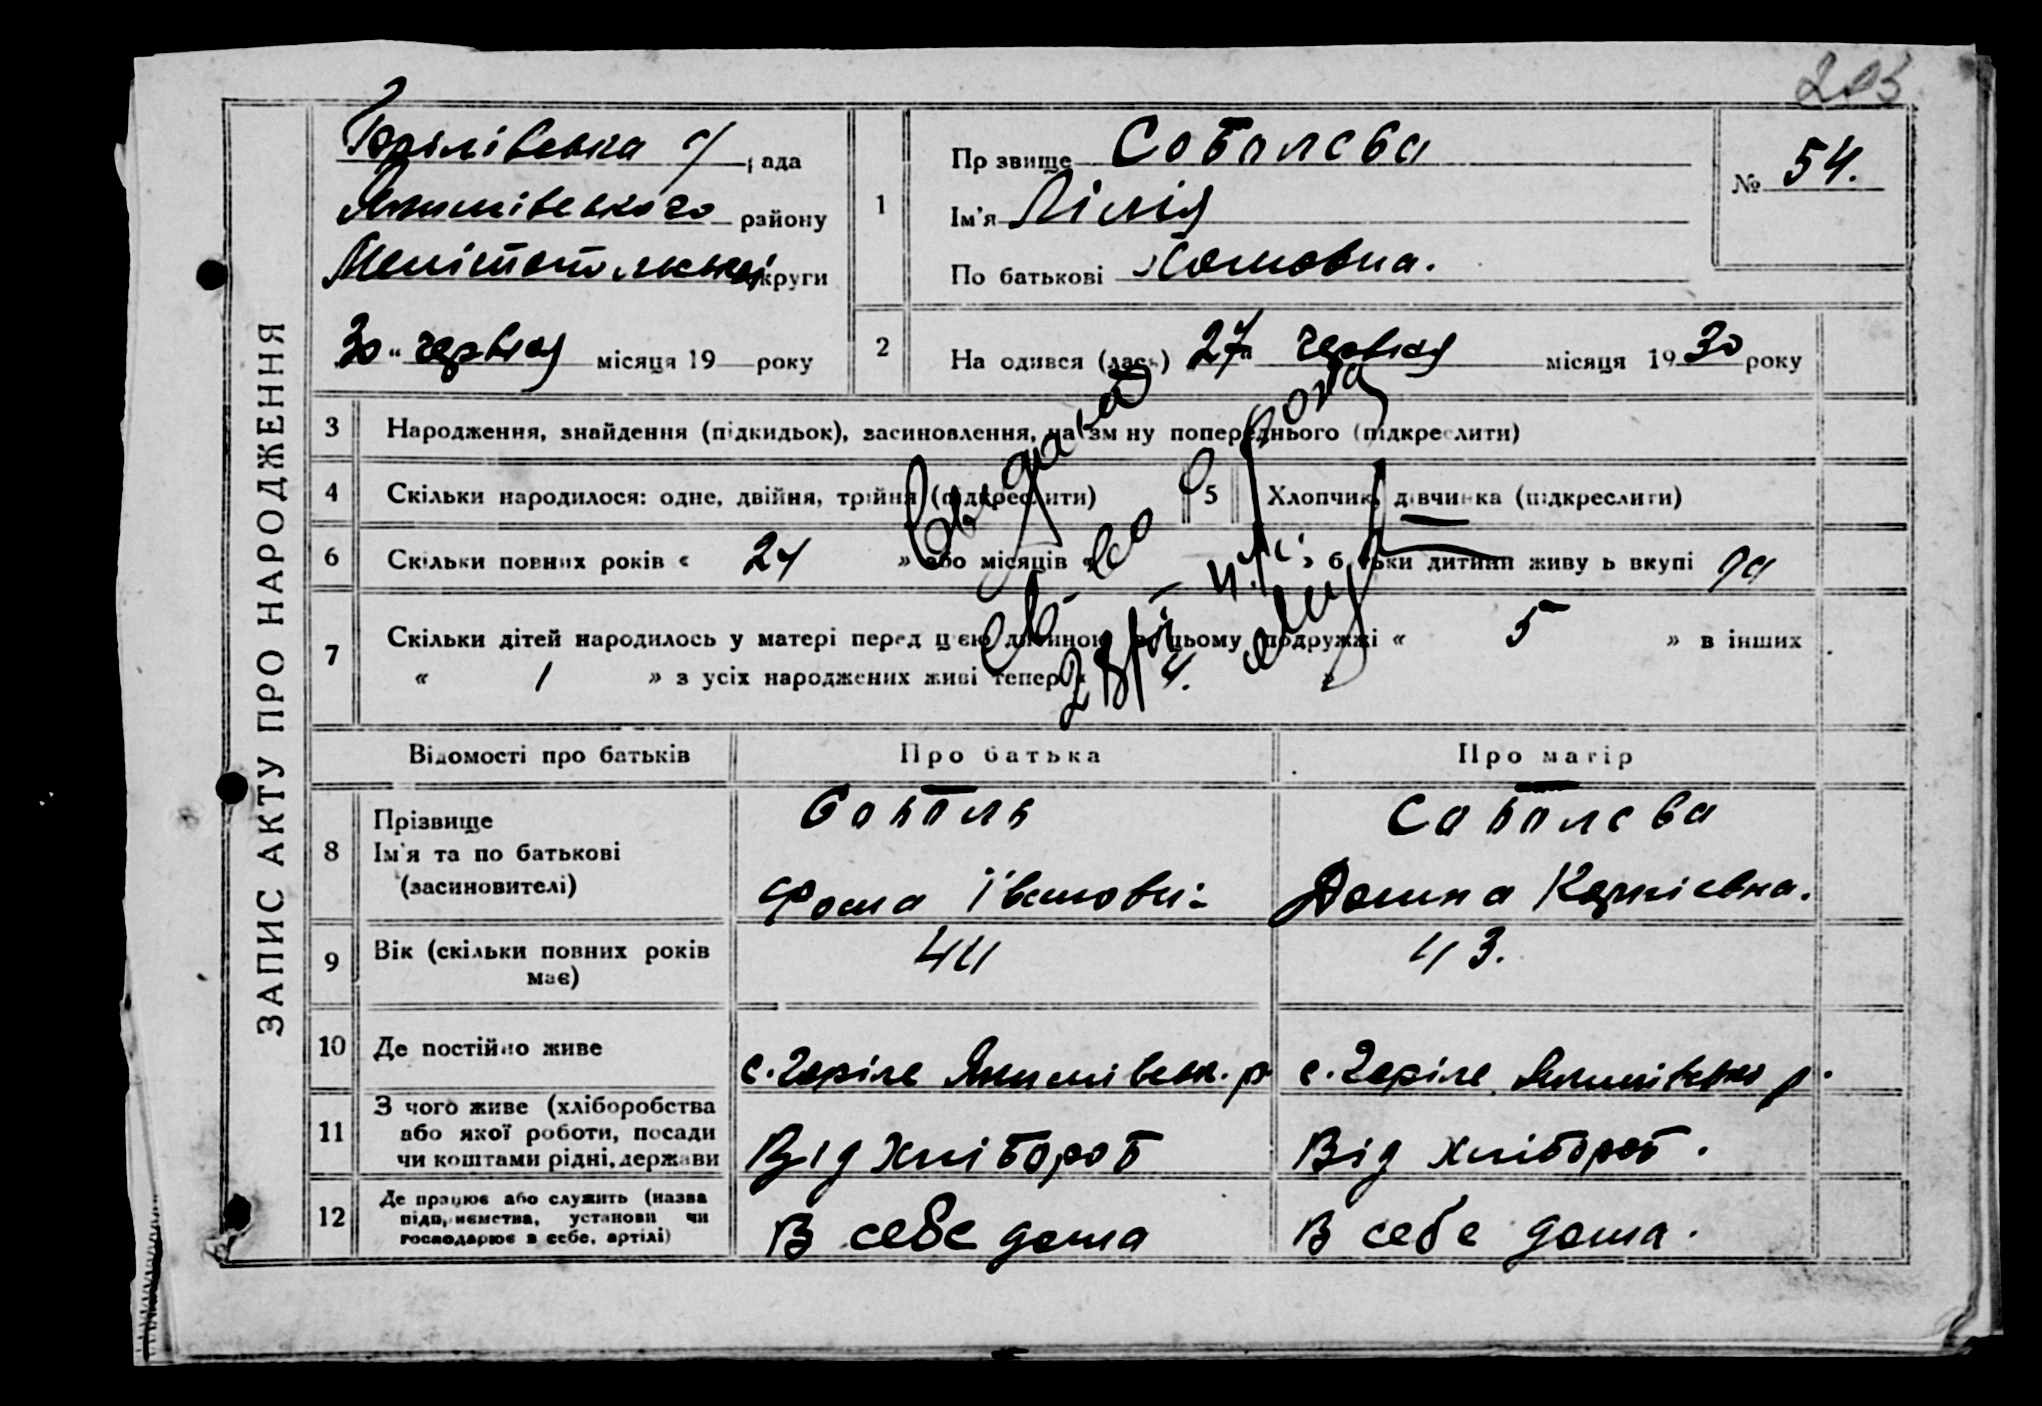 203
ЗАПИС АКТУ ПРО НАРОДЖЕННЯ
Горілівська с/ рада
Якимівського району
Мелітопольської округи
30 " червня місяця 19 року
1
Пр звище Соболєва
Ім'я Лілія
По батькові Хомовна.
№ 54.
2
На одився (лась) 27 " червня місяця 19 30 року
3 Народження, знайдення (підкидьок), засиновлення, на зм ну попереднього (підкреслити)
4 Скільки народилося: одне, двійня, трійня (підкреслити)
5 Хлопчик, дівчинка (підкреслити)
6 Скільки повних років « 24 » або місяців « » б тьки дитини живу ь вкупі
7 Скільки дітей народилось у матері перед цією дитиною в цьому подружжі « 5 » в інших
« 1 » з усіх народжених живі тепер « »
Відомості про батьків Про батька Про матір
8 Прізвище
Ім'я та по батькові
(засиновителі)
Соболь
Фома Іванови
Соболєва
Домна Корніевна.
9 Вік (скільки повних років
має)
44
43.
10 Де постійно живе
с. Горіле Якимівськ. р
с. Горіле Якимівсько р.
11 З чого живе (хліборобства
або якої роботи, посади
чи коштами рідні, держави
Від хлібороб
Від хлібороб.
12 Де працює або служить (назва
підприємства, установи чи
господарює в себе, артілі)
В себе дома
В себе дома.